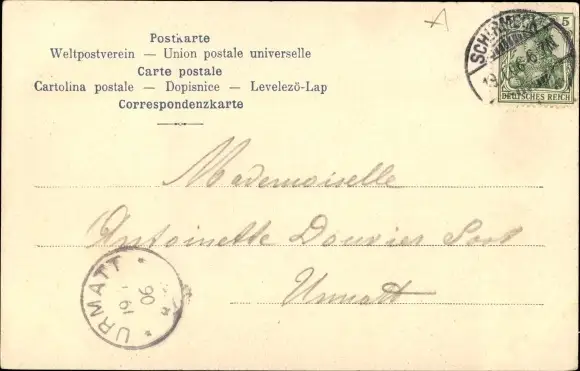 Postkarte
Weltpostverein — Union postale universelle
Carte postale
Cartolina postale — Dopisnice — Levelező-Lap
Correspondenzkarte
5
SCHIRMECK
DEUTSCHES REICH
Mademoiselle
Antoinette Douvier
Urmatt
URMATT